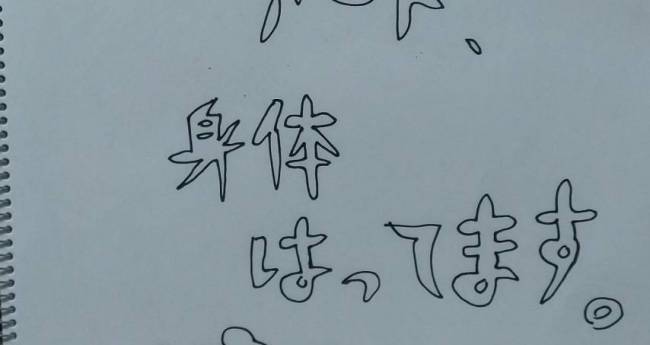 身体
はってます。